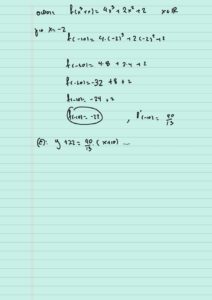 f(x³+x) = 4x³+2x²+2 x∈ℝ
x=-2
f(-10) = 4.(-2)³+2(-2)²+2
f(-10) = 4.8 + 2.4 +2
f(-10) = -32 +8+2
f(-10) = -24+2
f(-10) = -22 , f'(-10) = 40/13
(E): y+22 = 40/13 (x+10)